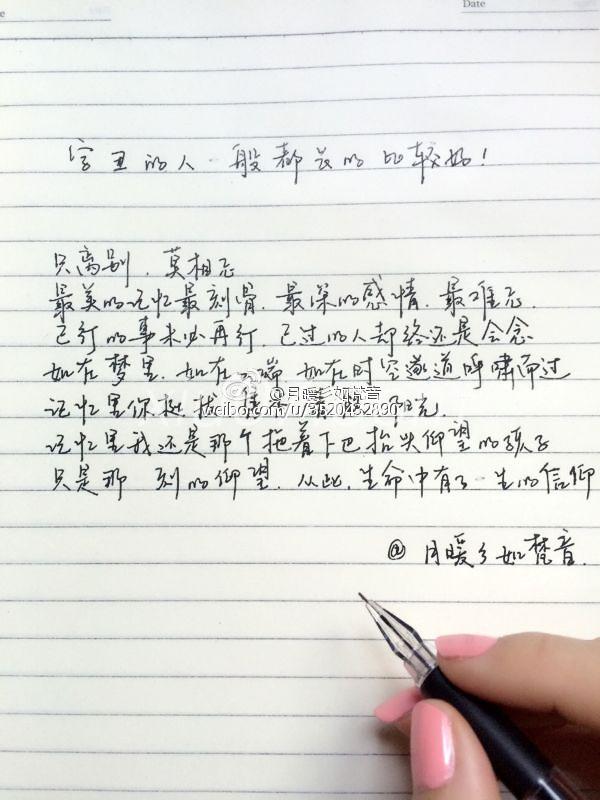 Date
字丑的人一般都长的比较好！
只离别，莫相忘
最美的记忆最刻骨，最深的感情，最难忘，
已行的事未必再行，已过的人却终还是会念
如在梦里，如在 端 如在时空遂道呼啸而过
记忆里你
记忆里我还是那个拖着下巴抬头仰望的孩子
只是那一刻的仰望，从此，生命中有了一生的信仰
@月暖乡如梵音
@月暖乡如梵音
weibo.com/u/3520432890